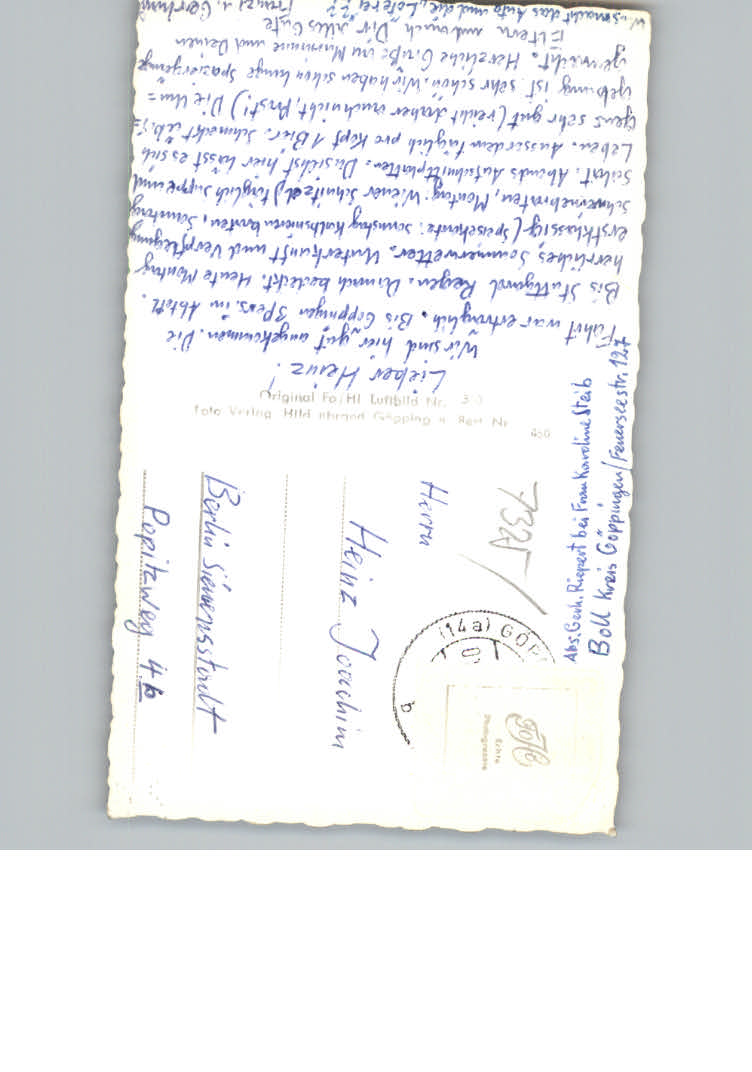 Lieber Heinz!
Wir sind hier gut angekommen. Die
Fahrt war erträglich. Bis Göppingen 3 Pers. im Abteil.
Bis Stuttgart Regen. Danach bedeckt. Heute Montag
herrliches Sommerwetter. Unterkunft und Verpflegung
erstklassig (Speisekarte: Samstag Kalbsnierenbraten, Sonntag
Schweinebraten, Montag: Wiener Schnitzel) täglich Suppe und
Salat. Abends Aufschnittplatten. Da lässt es sich
Leben. Ausserdem täglich pro Kopf 1 Bier. Schmeckt übri=
gens sehr gut (reicht daher auch nicht, Prost!) Die Um=
gebung ist sehr schön. Wir haben schon lange Spaziergänge
gemacht. Herzliche Grüße an Mummine und Deinen
Eltern und auch Dir alles Gute
Was macht das Auto und die Loterei??
Franzi u. Gerhard
Original Fo-Hi Luftbild Nr.
Foto Verlag Hildenbrand Göppingen Best Nr
450
Abs. Gerh. Riepert bei Frau Karoline Steib
Boll Kreis Göppingen/Feuerseestr. 127
7325/
(14a) GÖPP
b
FoHi
Echte
Photographie
Herrn
Heinz Joachim
Berlin Siemensstadt
Popitzweg 4b